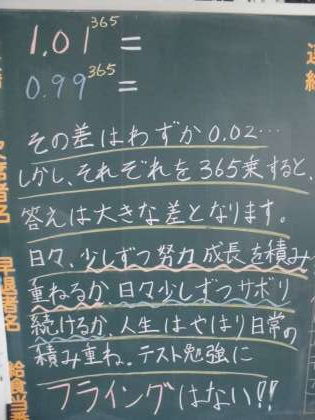 1.01³⁶⁵ =
0.99³⁶⁵ =
その差はわずか0.02…
しかし、それぞれを365乗すると、
答えは大きな差となります。
日々、少しずつ努力成長を積み
重ねるか、日々少しずつサボリ
続けるか、人生はやはり日常の
積み重ね。テスト勉強に
フライングはない!!
早退者名
給食当
連絡